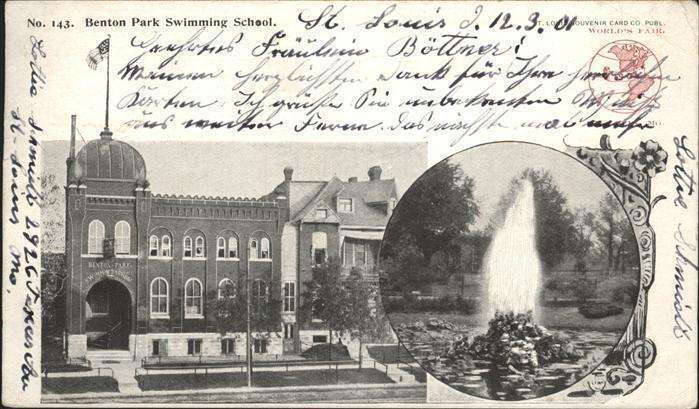 No. 143. Benton Park Swimming School.
ST. LOUIS SOUVENIR CARD CO. PUBL.
WORLD'S FAIR.
MO.
St. Louis d. 12. 3. 01
Geehrtes Fräulein Böttner!
Meinen herzlichsten Dank für Ihre
Karten. Ich grüße Sie unbekannter
aus weiter Ferne. Das nächste mal mehr
Lottie Schmidt
Lottie Schmidt 2926
St-Louis Mo.
BENTON PARK
SWIMMING